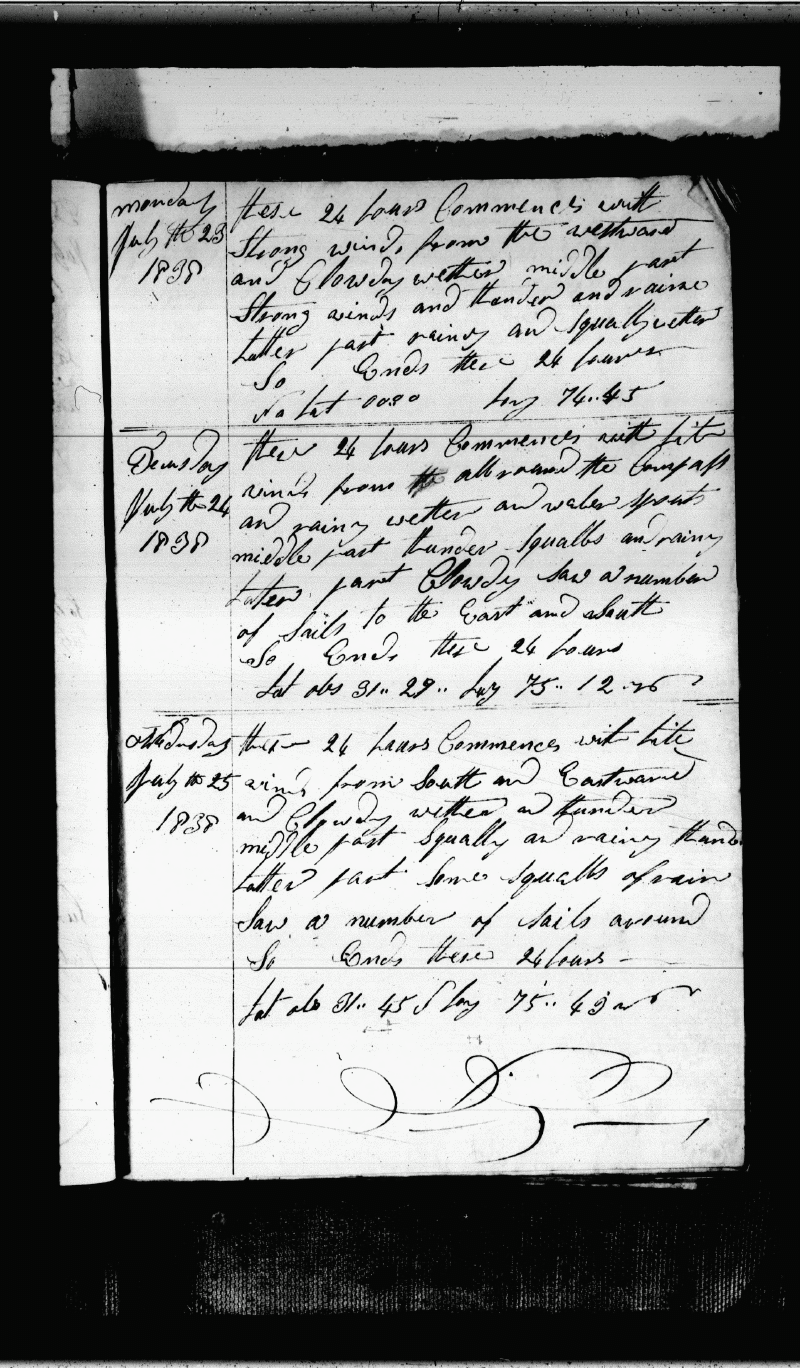 monday
July the 23
1838
these 24 hours Commences with
Strong winds from the westward
and Clowdy wether middle part
Strong winds and thunder and raine
Latter part rainy and Squally wether
So Ends these 24 hours
No Lat 00..00 Long 74..45
Teusday
July the 24
1838
these 24 hours Commences with lite
winds from the all round the Compass
and rainy wether and water spouts
middle part thunder Squalls and rainy
Latter part Clowdy Saw a number
of Sails to the East and South
So Ends these 24 hours
Lat obs 31.. 29.. Long 75.. 12
Wednesday
July the 25
1838
these 24 hours Commences with lite
winds from South and Eastward
and Clowdy wether and thunder
middle part Squally and rainy thunder
Latter part Some Squalls of rain
Saw a number of Sails around
So Ends these 24 hours
Lat obs 31.. 45 N Long 75.. 49